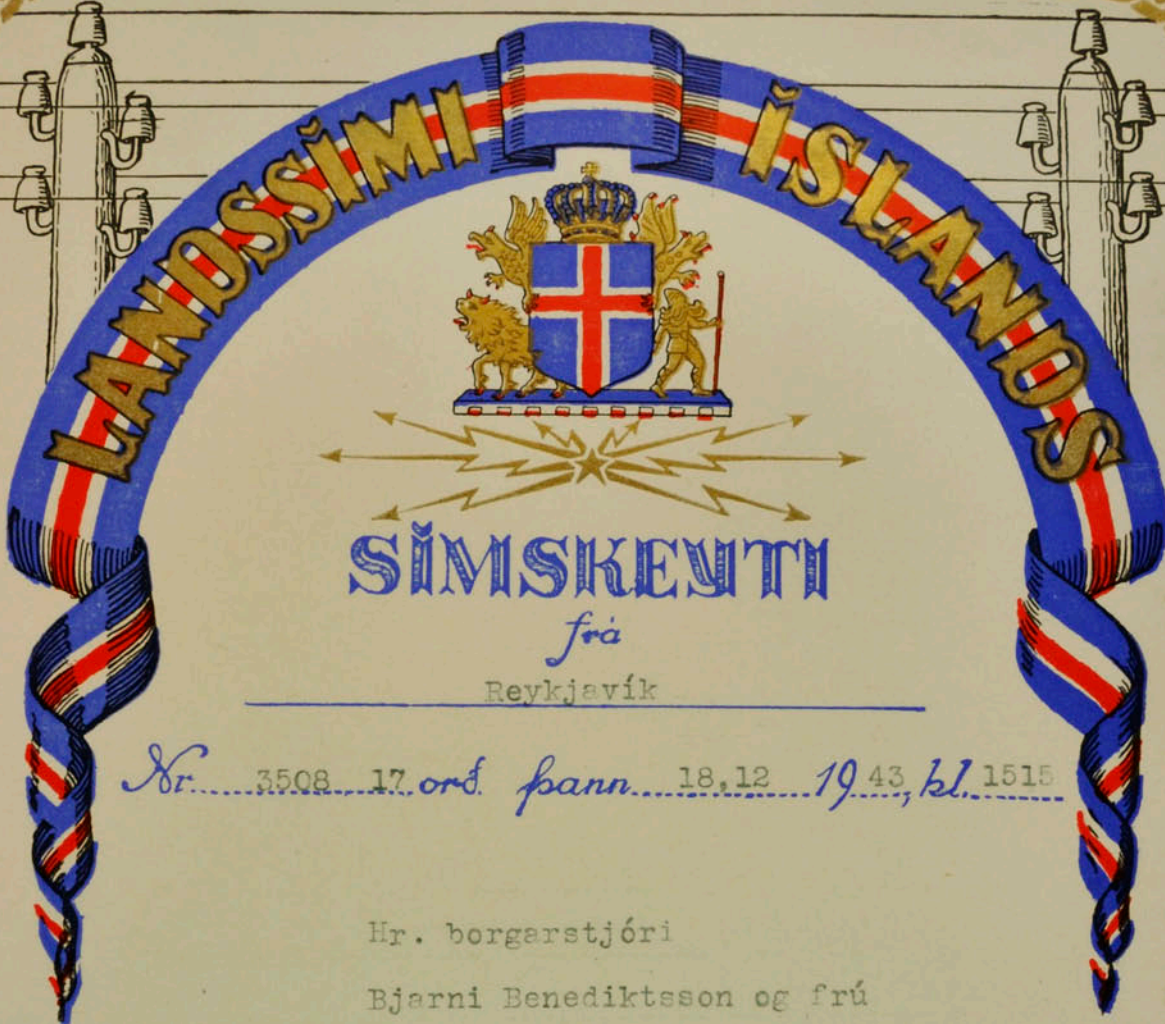 LANDSSÍMI ÍSLANDS
SÍMSKEYTI
frá
Reykjavík
Nr. 3508 17 orð. þann 18,12 1943, kl. 1515
Hr. borgarstjóri
Bjarni Benediktsson og frú